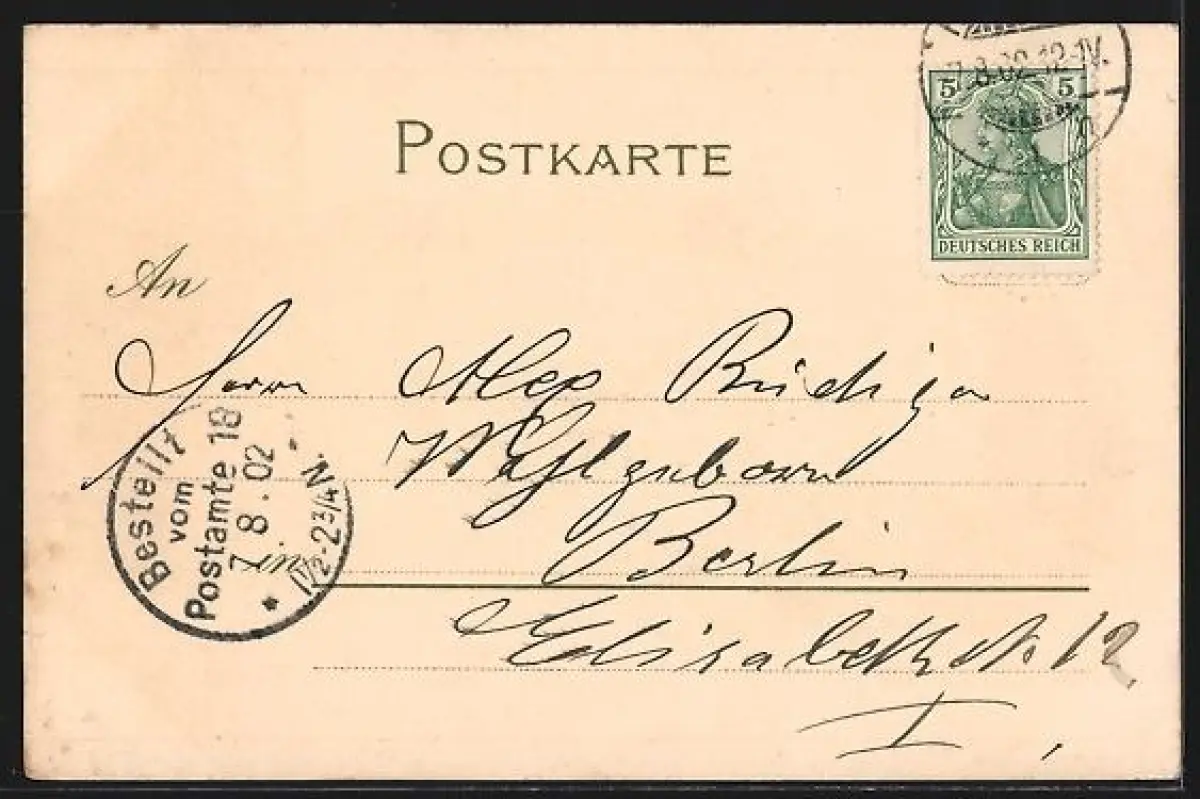 7.8.02.12-1V.
5 5
DEUTSCHES REICH
POSTKARTE
An
Herrn Alex Rüdiger
Wohlgeboren
in Berlin
Elisabethstr 12
I.
Bestellt
vom
Postamte 18
7.8.02
1½-2¾N.